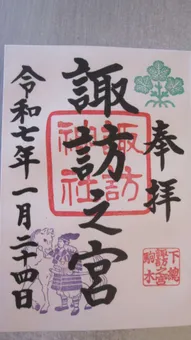 奉拝
諏訪之宮
諏訪
神社
令和七年一月二十四日
下諏
諏訪之宮
駒木